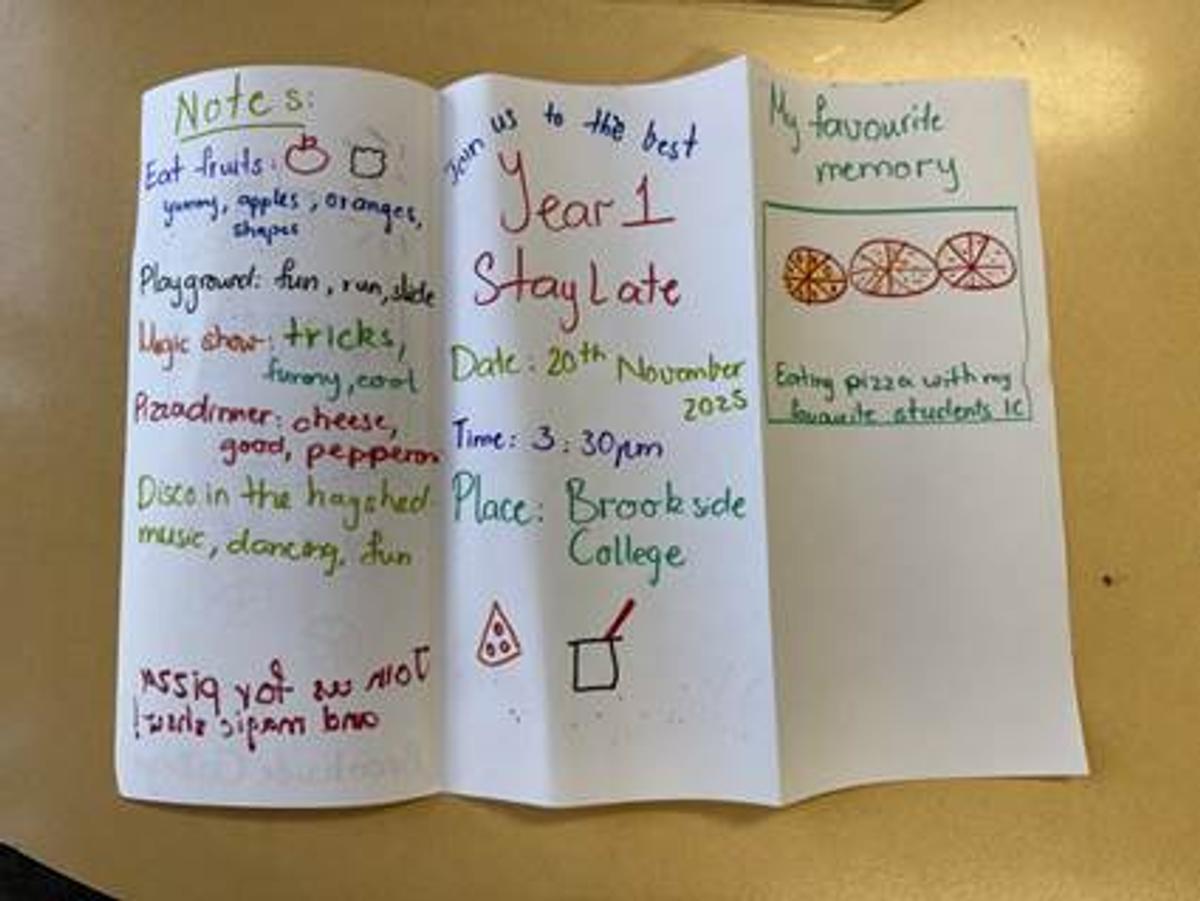 Notes:
Eat fruits:
yummy, apples, oranges,
shapes
Playground: fun, run, slide
Magic show: tricks,
funny, cool
Pizzadinner: cheese,
good, pepperoni
Disco in the hayshed
music, dancing, fun
Join us for pizza
and magic show!
Join us to the best
Year 1
Stay Late
Date: 20th November
2025
Time: 3:30pm
Place: Brookside
College
My favourite
memory
Eating pizza with my
favourite students 1C